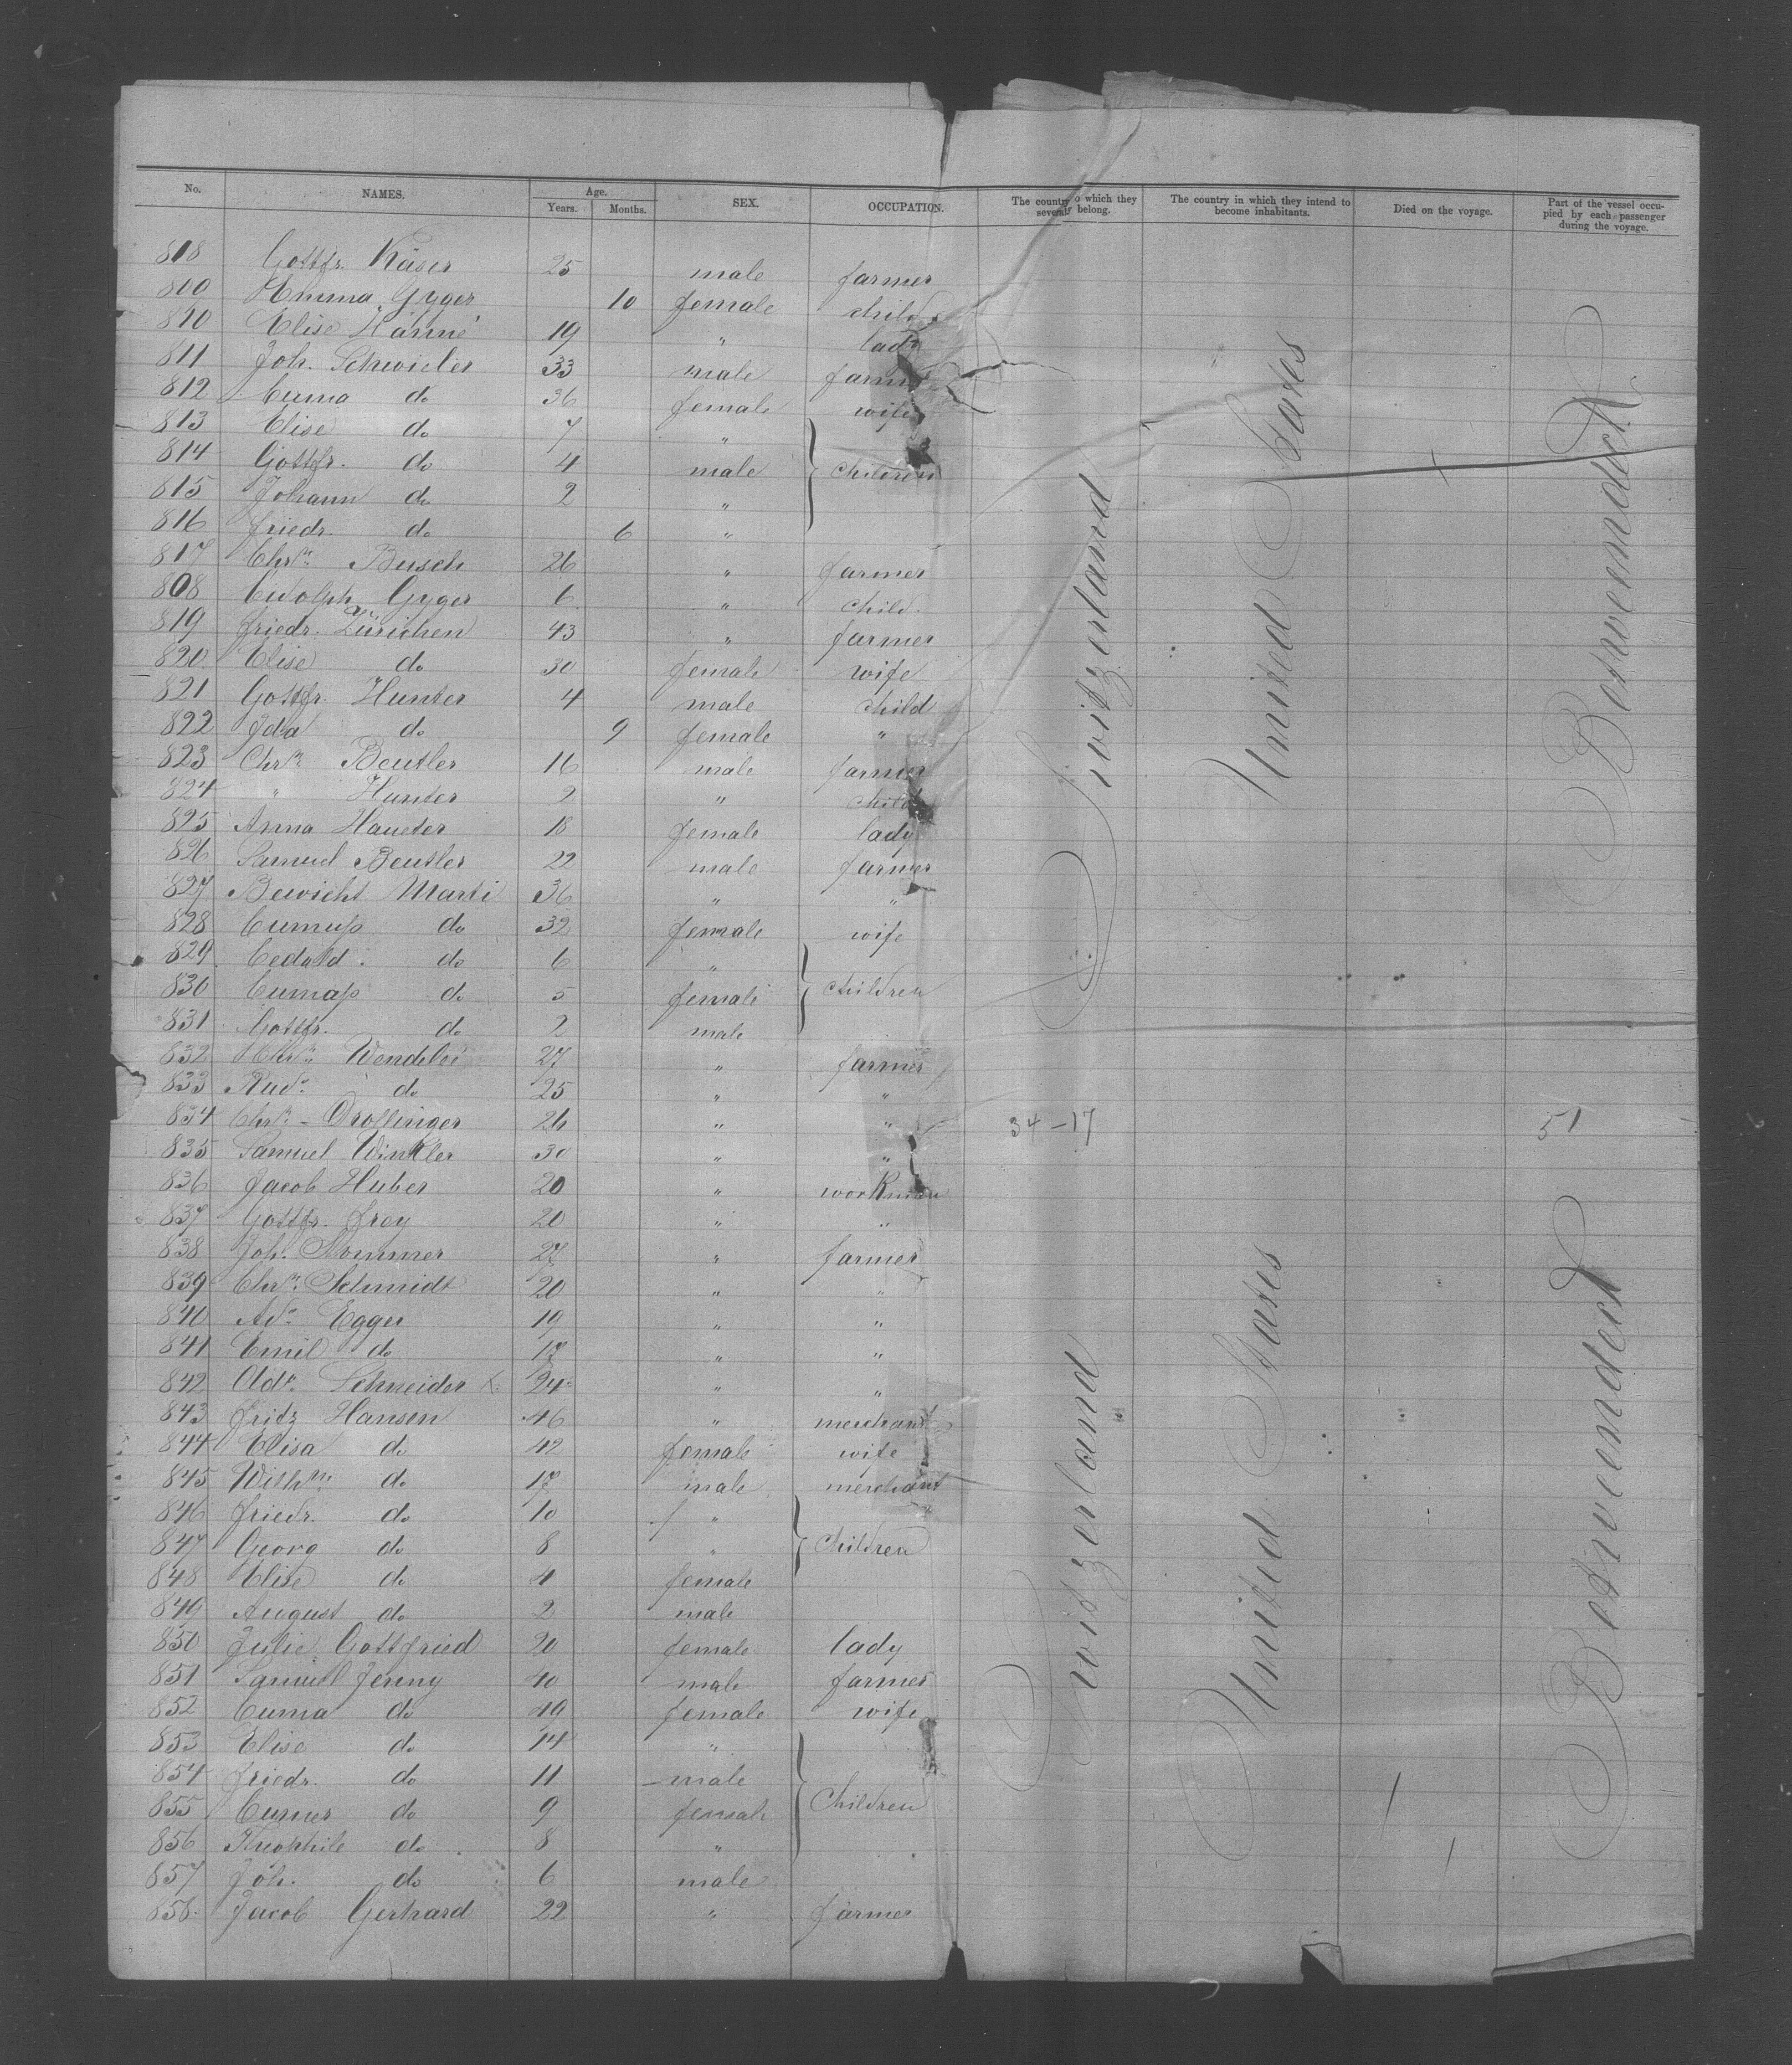 No. NAMES. Age. Years. Months. SEX. OCCUPATION. The country to which they severally belong. The country in which they intend to become inhabitants. Died on the voyage. Part of the vessel occupied by each passenger during the voyage.
818 Gottfr. Käser 25 male farmer
809 Emma Gyger 10 female child
810 Elise Hänni 19 " lady
811 Joh. Schwieler 33 male farmer
812 do 36 female wife
813 Elise do 7 "
814 Gottfr. do 4 male children
815 Johann do 2 "
816 Friedr. do 6 "
817 Chrn Busch 26 " farmer
808 Gyger 6 " child
819 Friedr. Zürichen 43 " farmer
820 Elise do 30 female wife
821 Gottfr. Hunter 4 male child
822 Ida do 9 female "
823 Chrn Beutler 16 male farmer
824 " Hunter 2 " child
825 Anna Haueter 18 female lady
826 Samuel Beutler 22 male farmer
827 Marti 36 " "
828 do 32 female wife
829 do 6 "
830 do 5 female children
831 Gottfr. do 2 male
832 Chrn Wendelei 27 " farmer
833 Rud. do 25 " "
834 Chrn Drollinger 26 " " 34-17 51
835 Samuel Winkler 30 " "
836 Jacob Huber 20 " workman
837 Gottfr. Frey 20 " "
838 Joh. Sommer 27 " farmer
839 Chrn Schmidt 20 " "
840 Ad. Egger 19 " "
841 Emil do 17 " "
842 Schneider 24 " "
843 Fritz Hansen 46 " merchant
844 Elisa do 42 female wife
845 Wilhm do 17 male merchant
846 Friedr. do 10 " "
847 Georg do 8 " Children
848 Elise do 4 female
849 August do 2 male
850 Julie Gottfried 20 female lady
851 Samuel Jenny 40 male farmer
852 do 49 female wife
853 Elise do 14 "
854 Friedr. do 11 male
855 do 9 female Children
856 Theophile do 8 "
857 Joh. do 6 male
858 Jacob Gerhard 22 " farmer
Switzerland
United States
Betweendeck
Switzerland
United States
Betweendeck